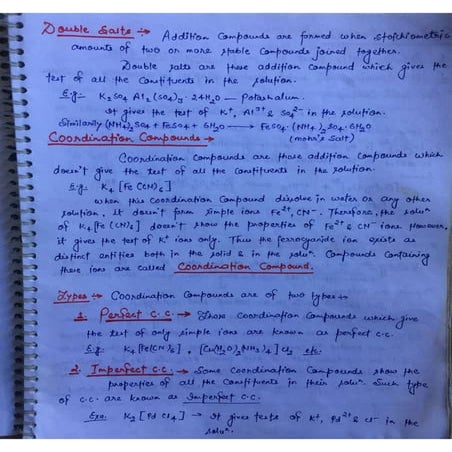 Double Salts → Addition Compounds are formed when stoichiometric
amounts of two or more stable compounds joined together.
Double salts are those addition compound which gives the
test of all the constituents in the solution.
E.g. K2SO4 Al2(SO4)3 · 24H2O — Potashalum.
It gives the test of K+, Al3+ & SO4 2- in the solution.
Similarily (NH4)2SO4 + FeSO4 + 6H2O → FeSO4·(NH4)2SO4·6H2O
(mohr's salt)
Coordination Compounds →
Coordination Compounds are those addition compounds which
doesn't give the test of all the constituents in the solution.
E.g. K4[Fe(CN)6]
when this coordination compound dissolve in water or any other
solution, it doesn't form simple ions Fe2+, CN-. Therefore, the solun
of K4[Fe(CN)6] doesn't show the properties of Fe2+ & CN- ions. However,
it gives the test of K+ ions only. Thus the ferrocyanide ion exists as
distinct entities both in the solid & in the solun. Compounds containing
these ions are called Coordination Compound.
Types → Coordination Compounds are of two types →
1. Perfect C.C. → Those coordination compounds which give
the test of only simple ions are known as perfect c.c.
E.g. K4[Fe(CN)6], [Cu(H2O)2(NH3)4]Cl2 etc.
2. Imperfect C.C. → Some Coordination Compounds show the
properties of all the constituents in their solun. Such type
of c.c. are known as Imperfect c.c.
K2[PdCl4] → It gives tests of K+, Pd2+ & Cl- in the
solun.